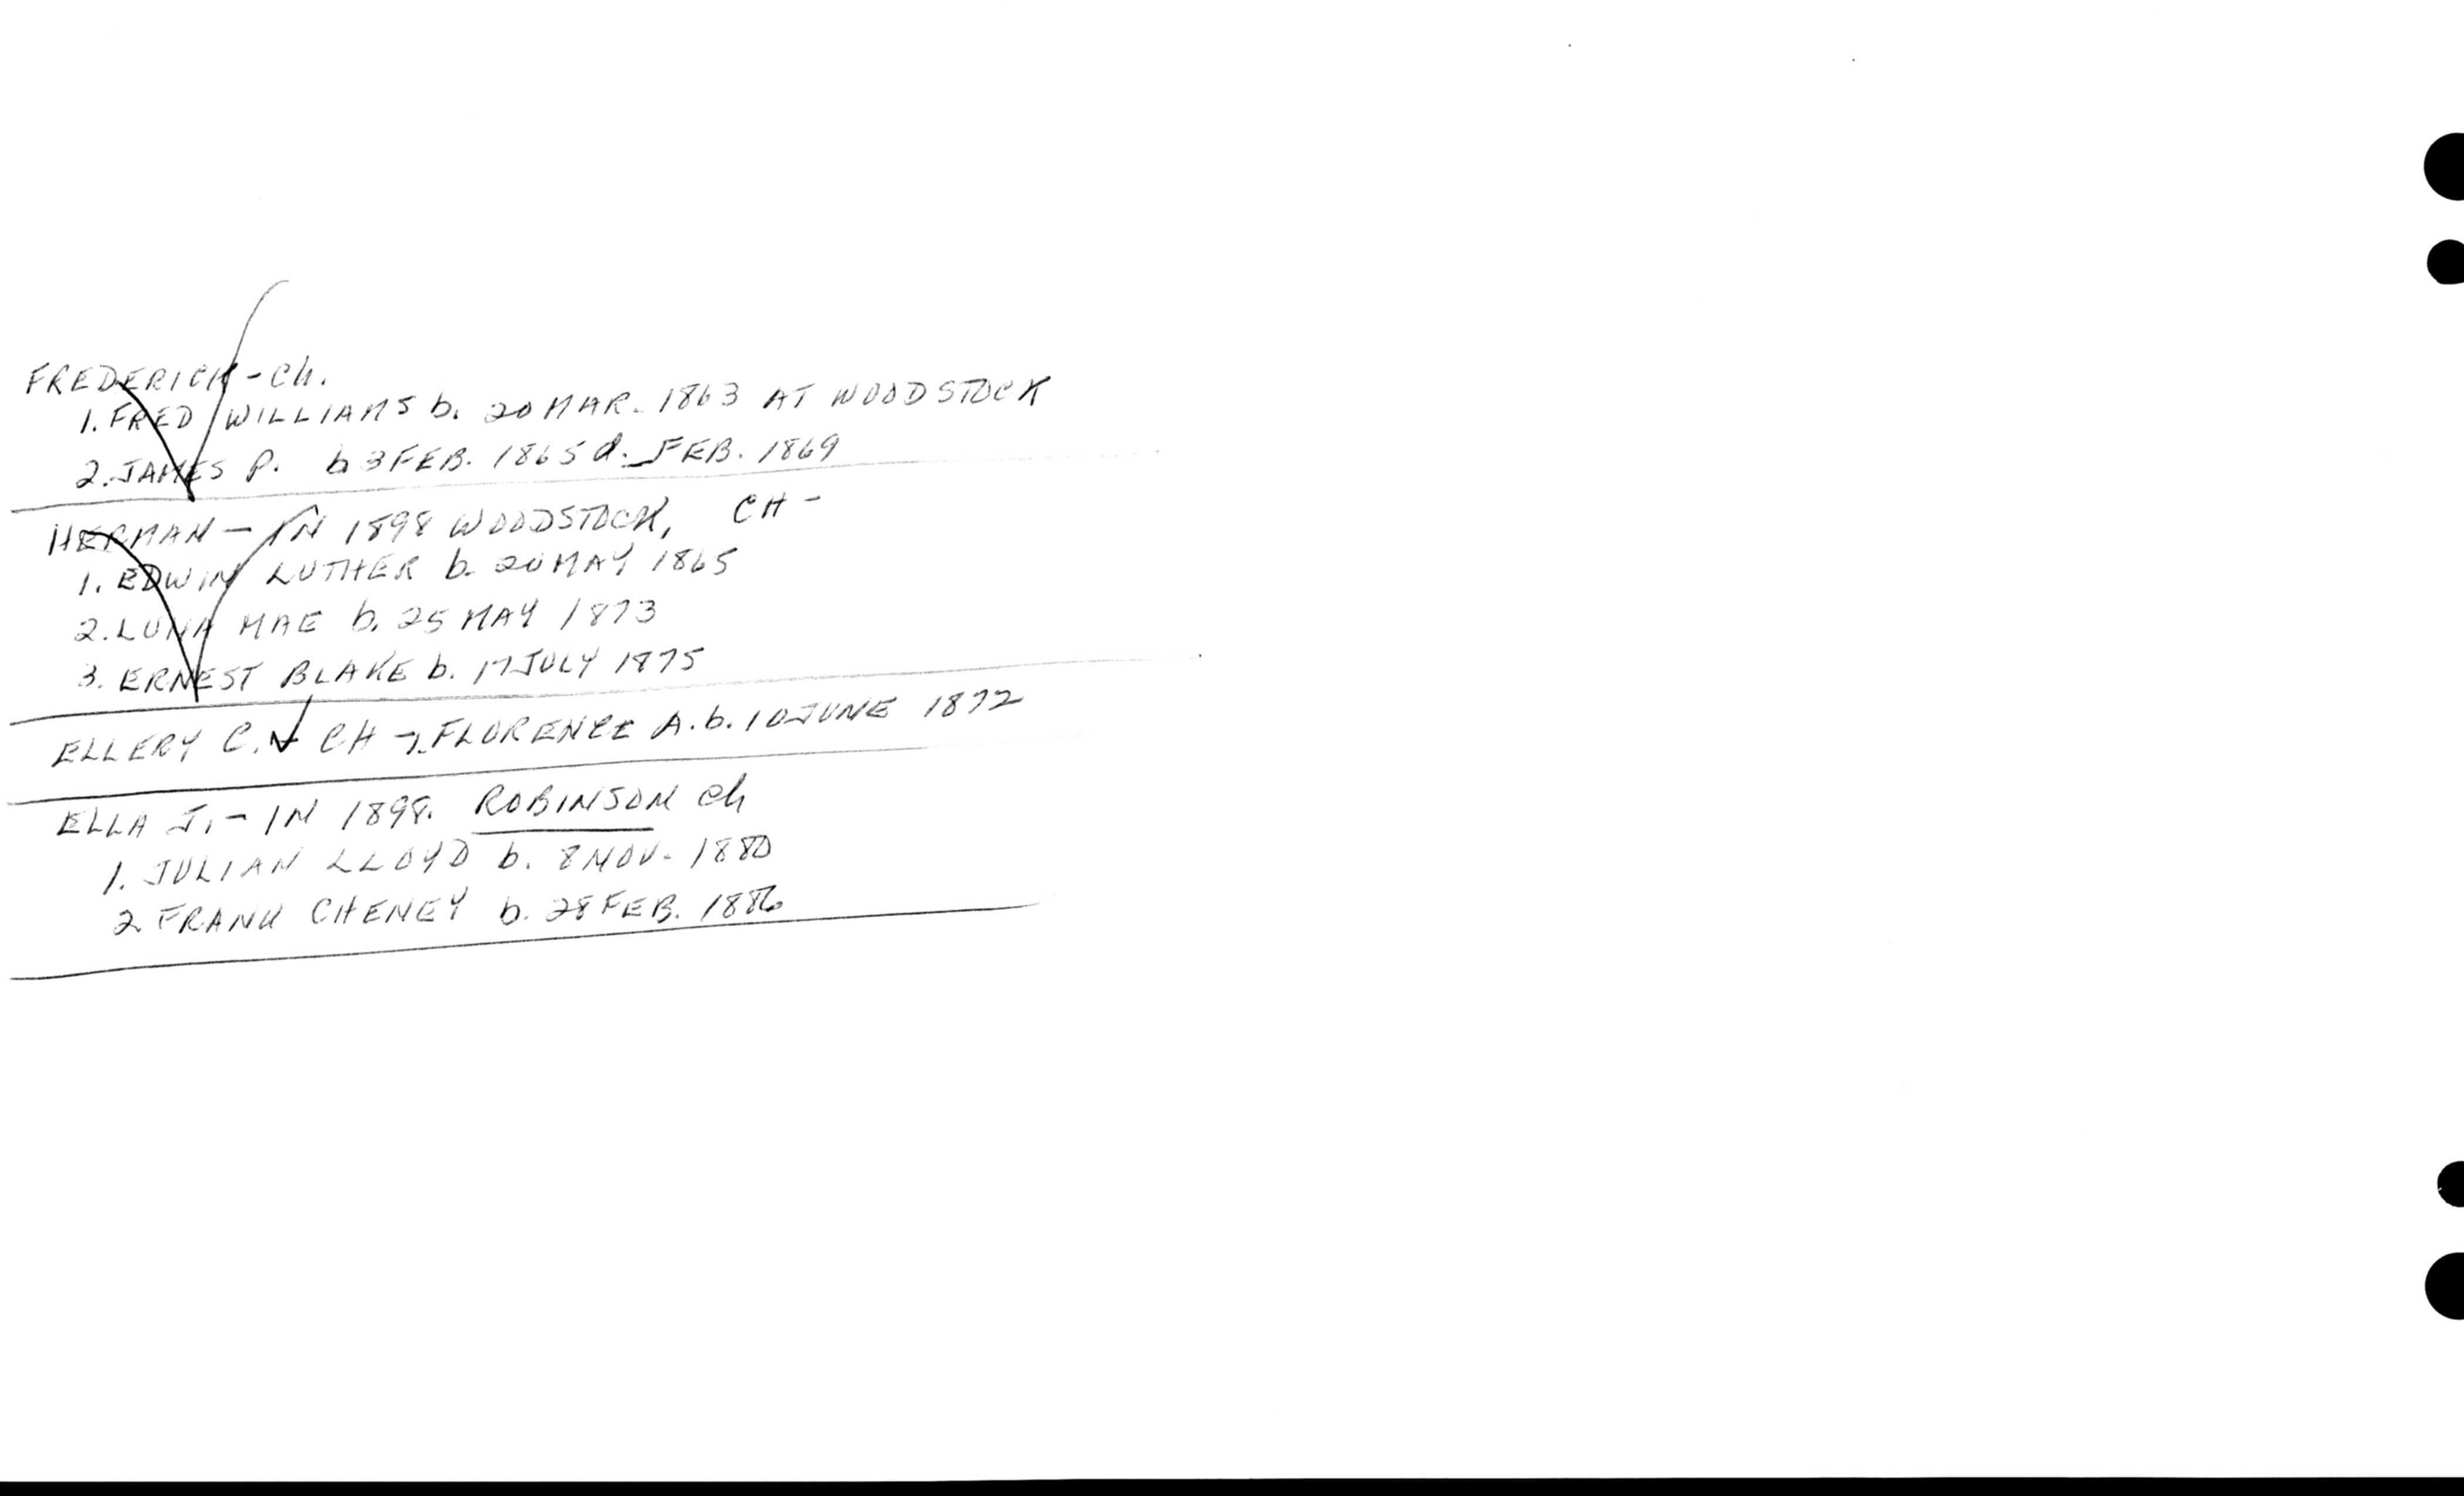 FREDERICK - Ch.
1. FRED WILLIAMS b. 20 MAR. 1863 AT WOODSTOCK
2. JAMES P. b 3 FEB. 1865 d. FEB. 1869
HERMAN - IN 1898 WOODSTOCK, CH -
1. EDWIN LUTHER b. 20 MAY 1865
2. LUNA MAE b. 25 MAY 1873
3. ERNEST BLAKE b. 17 JULY 1875
ELLERY C. - CH - 1. FLORENCE A. b. 10 JUNE 1872
ELLA J. - IN 1898. ROBINSON Ch
1. JULIAN LLOYD b. 8 NOV. 1880
2. FRANK CHENEY b. 28 FEB. 1886